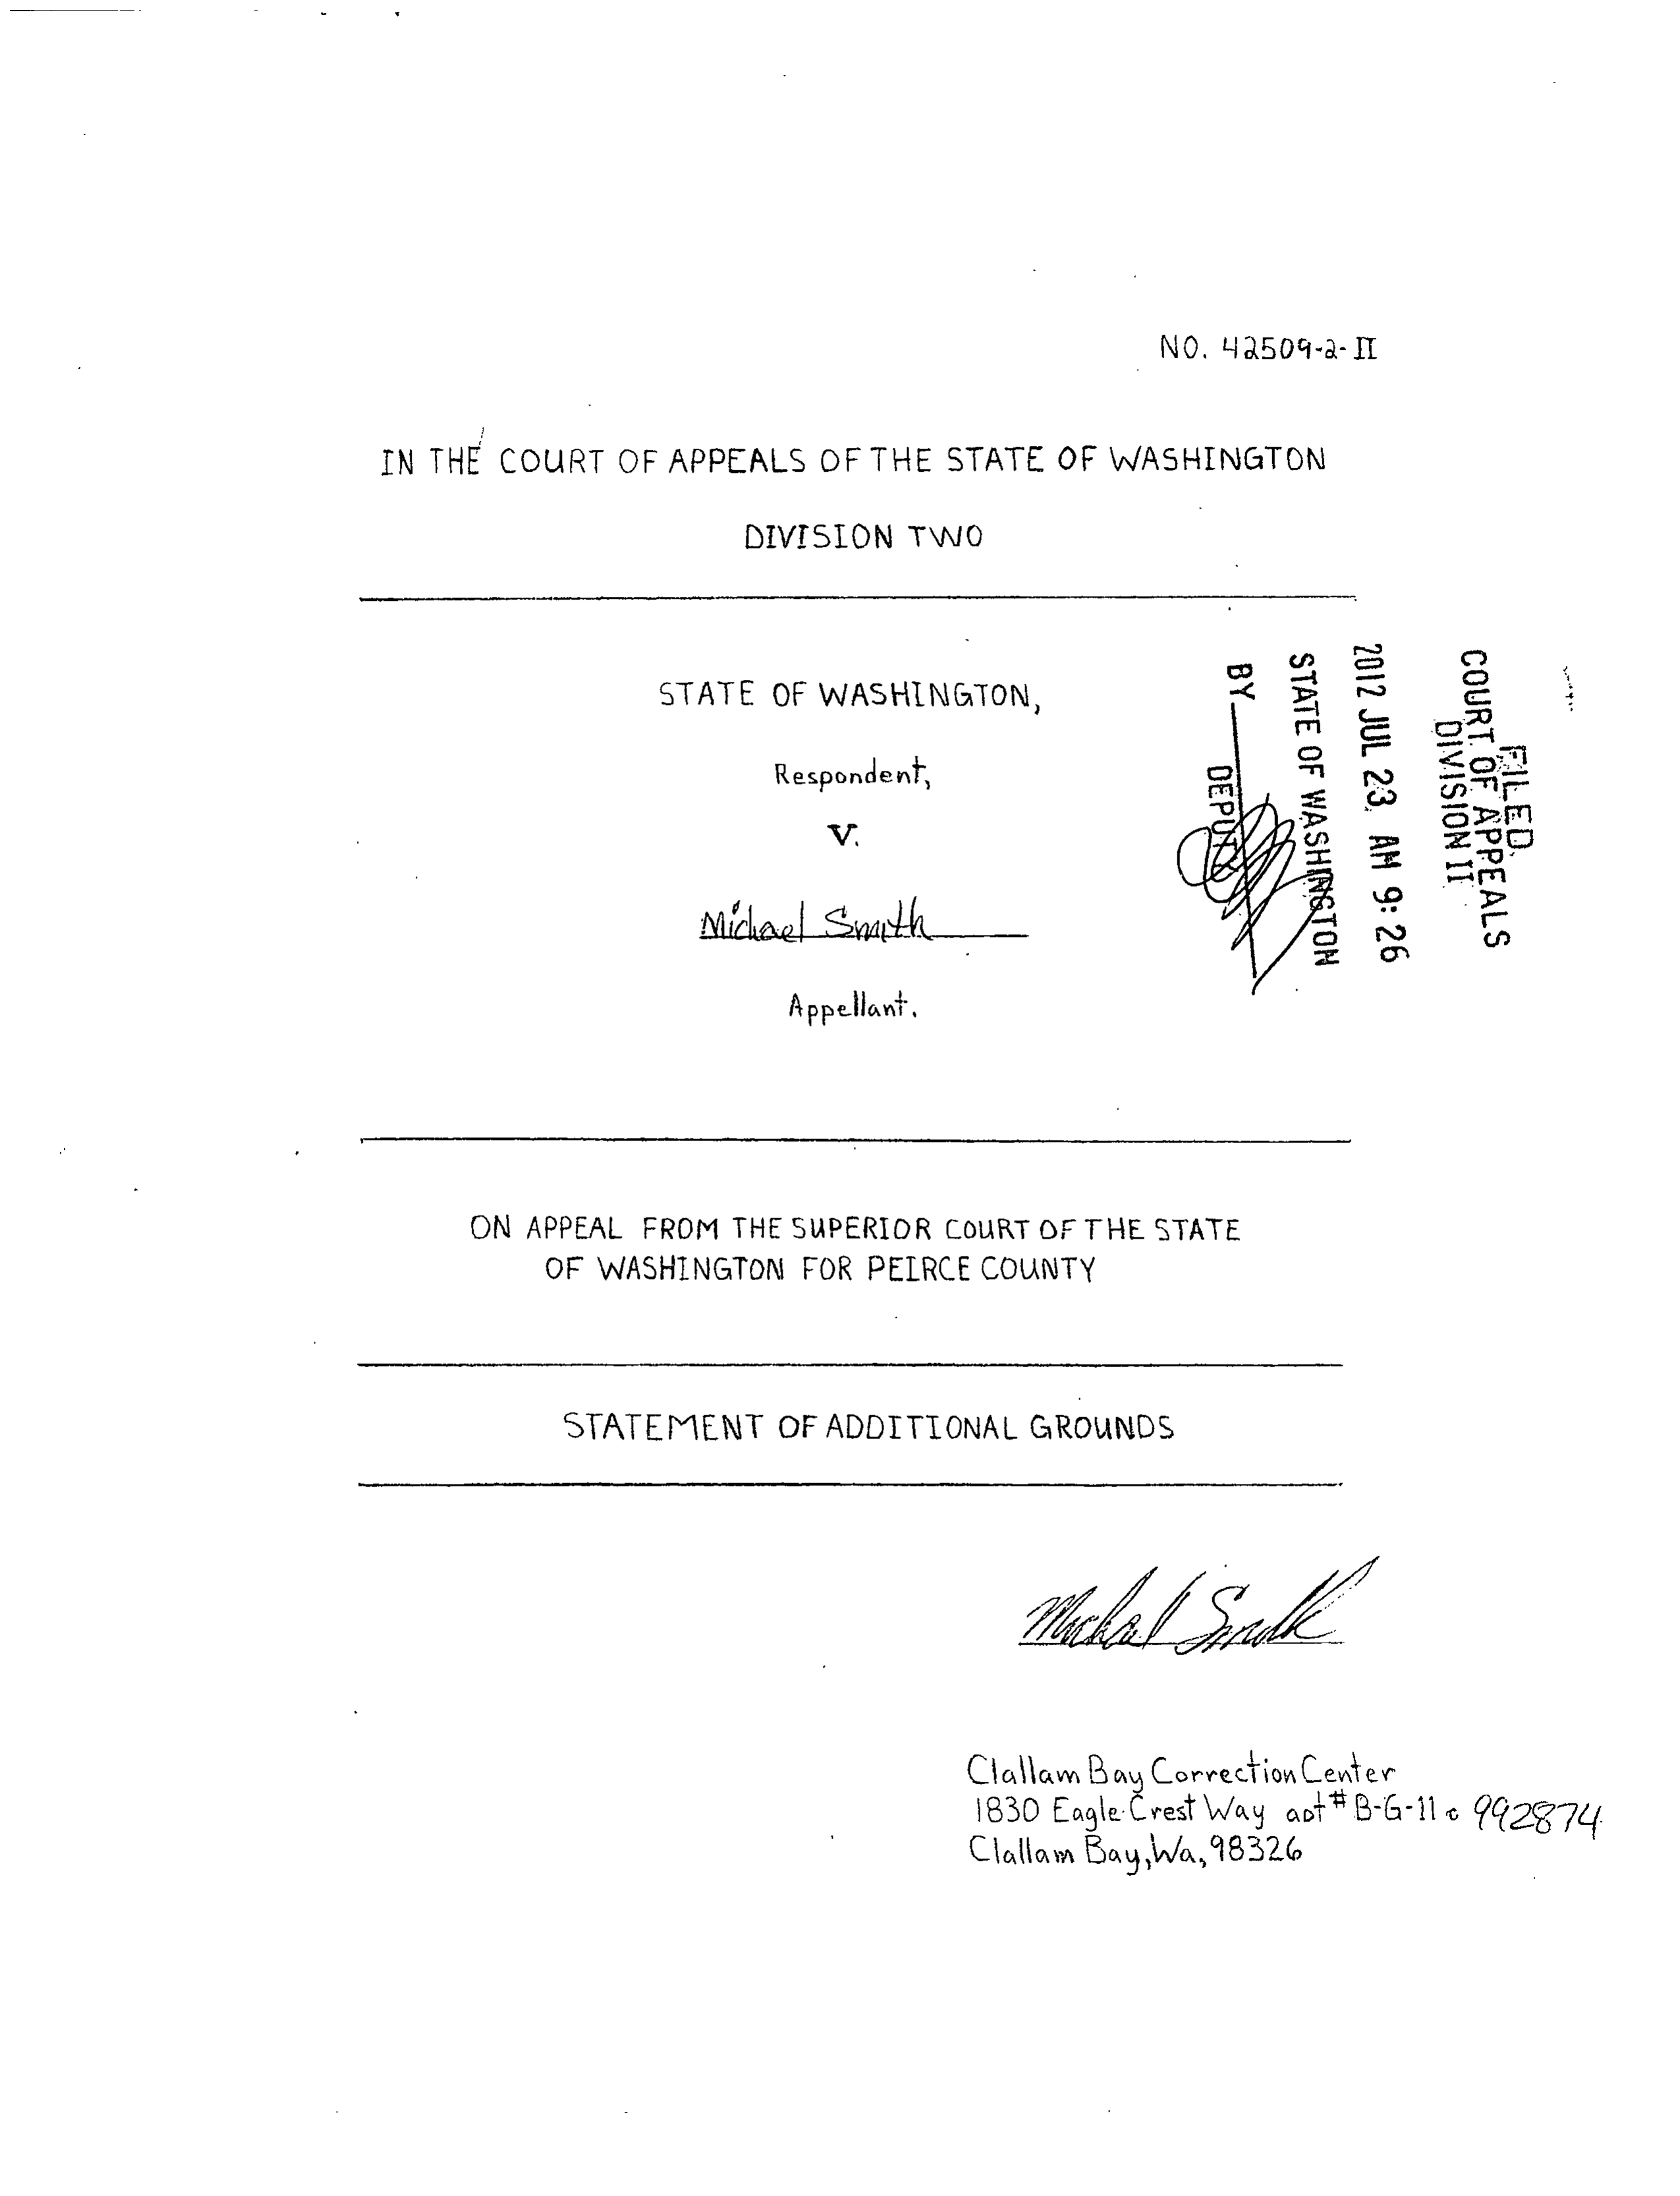 NO. 42509-2-II
IN THE COURT OF APPEALS OF THE STATE OF WASHINGTON
DIVISION TWO
STATE OF WASHINGTON,
Respondent,
V.
Michael Smith
Appellant.
FILED
COURT OF APPEALS
DIVISION II
2012 JUL 23 AM 9:26
STATE OF WASHINGTON
BY
DEPUTY
ON APPEAL FROM THE SUPERIOR COURT OF THE STATE
OF WASHINGTON FOR PEIRCE COUNTY
STATEMENT OF ADDITIONAL GROUNDS
Michael Smith
Clallam Bay Correction Center
1830 Eagle Crest Way apt # B-G-11 992874
Clallam Bay, Wa, 98326